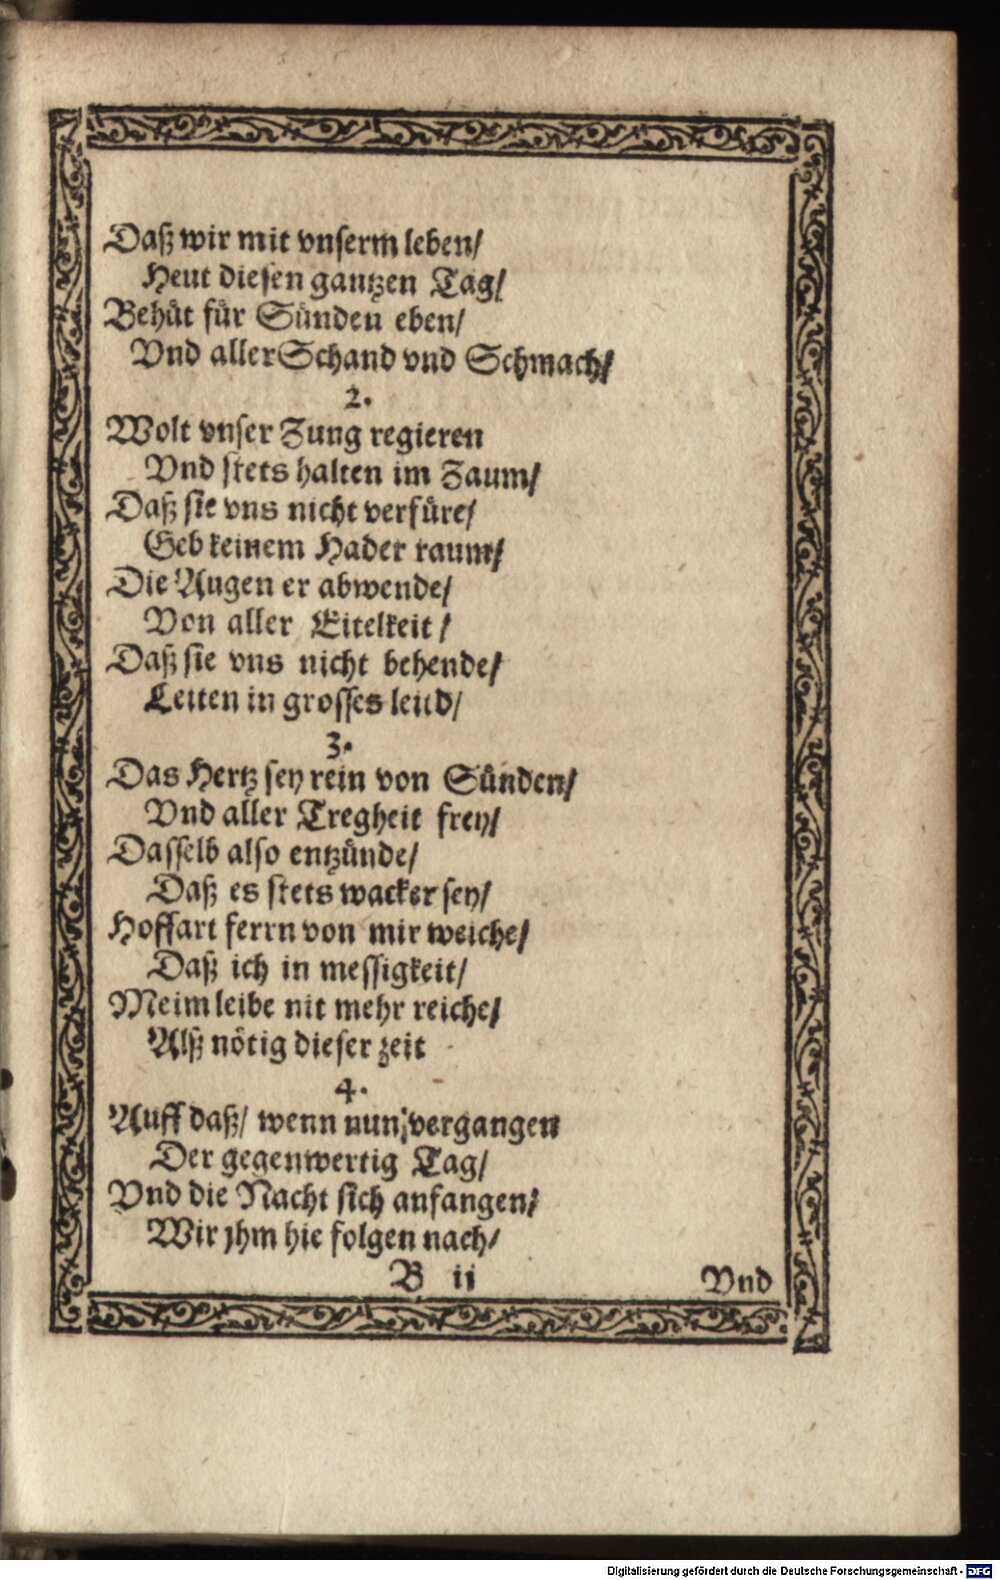 Daß wir mit vnserm leben/
Heut diesen gantzen Tag/
Behüt für Sünden eben/
Vnd aller Schand vnd Schmach/
2.
Wolt vnser Zung regieren
Vnd stets halten im Zaum/
Daß sie vns nicht verfüre/
Geb keinem Hader raum/
Die Augen er abwende/
Von aller Eitelkeit/
Daß sie vns nicht behende/
Leiten in grosses leid/
3.
Das Hertz sey rein von Sünden/
Vnd aller Tregheit frey/
Dasselb also entzünde/
Daß es stets wacker sey/
Hoffart ferrn von mir weiche/
Daß ich in messigkeit/
Meim leibe nit mehr reiche/
Alß nötig dieser zeit
4.
Auff daß/ wenn nun vergangen
Der gegenwertig Tag/
Vnd die Nacht sich anfangen/
Wir jhm hie folgen nach/
B ii Vnd
Digitalisierung gefördert durch die Deutsche Forschungsgemeinschaft - DFG